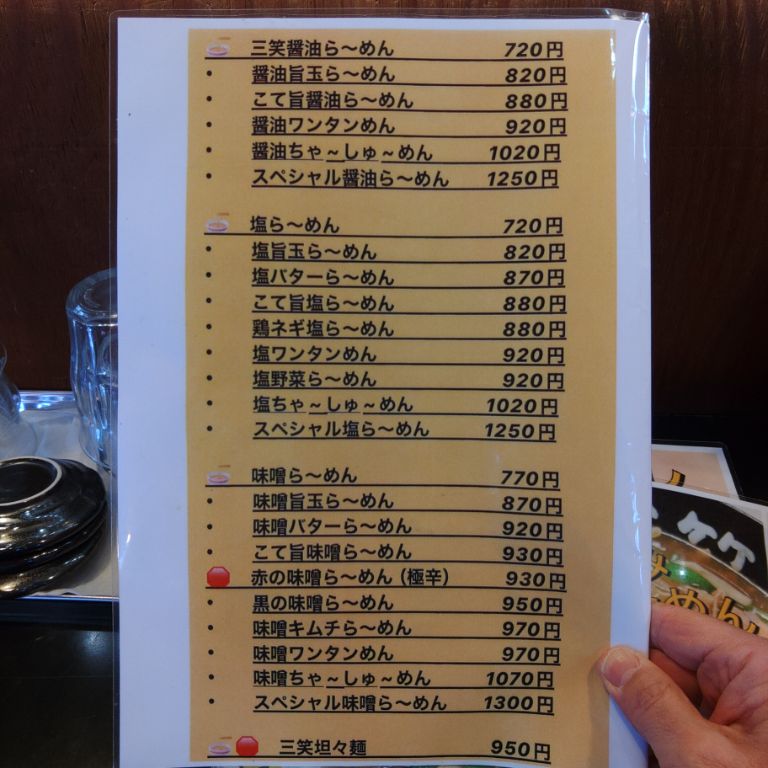 三笑醤油ら～めん 720円
・ 醤油旨玉ら～めん 820円
・ こて旨醤油ら～めん 880円
・ 醤油ワンタンめん 920円
・ 醤油ちゃ～しゅ～めん 1020円
・ スペシャル醤油ら～めん 1250円
塩ら～めん 720円
・ 塩旨玉ら～めん 820円
・ 塩バターら～めん 870円
・ こて旨塩ら～めん 880円
・ 鶏ネギ塩ら～めん 880円
・ 塩ワンタンめん 920円
・ 塩野菜ら～めん 920円
・ 塩ちゃ～しゅ～めん 1020円
・ スペシャル塩ら～めん 1250円
味噌ら～めん 770円
・ 味噌旨玉ら～めん 870円
・ 味噌バターら～めん 920円
・ こて旨味噌ら～めん 930円
赤の味噌ら～めん（極辛） 930円
・ 黒の味噌ら～めん 950円
・ 味噌キムチら～めん 970円
・ 味噌ワンタンめん 970円
・ 味噌ちゃ～しゅ～めん 1070円
・ スペシャル味噌ら～めん 1300円
三笑坦々麺 950円